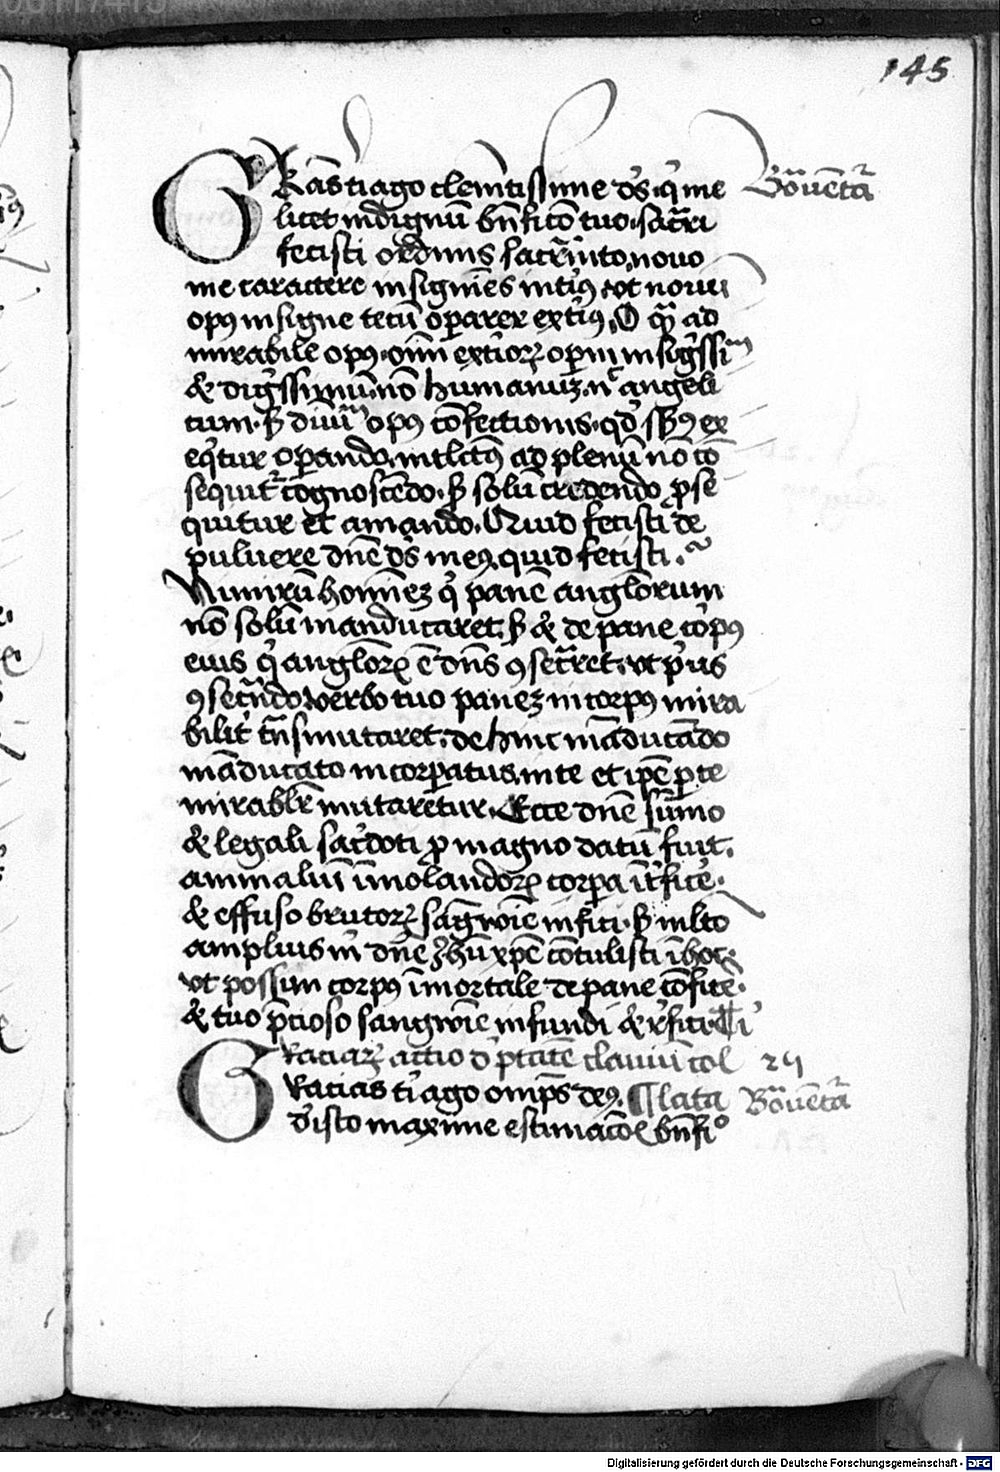 145
GRas ti ago clemētissime ds qi me
Bonauēta
licet indignū bnficio tuo sacri
fecisti ordinis sacrīnto, nouo
me caractere insigniēs inti9 vt nouū
op9 insigne tecū oparer exti9, O qm ad
mirabile op9 oīm extiorꝝ operū insigissim
& digissimū nō humanuz nc angeli
cum s diuinū op9 cōfectionis qd sb9 ex
eqtur operando, intlcts ad plenū nō cō
sequitr cognoscēdo s solū credendo pse
quitur et amando. Quid fecisti de
puluere dnē ds me9, quid fecisti.
Nimirū hominez q panē anglorum
nō solū manducaret s & de pane corp9
eius q anglorꝝ ē dns 9secret vt pus
9secrando verbo tuo panez in corp9 mira
bilit tnsmutaret, dehinc māducādo
māducato incorpatus, in te et ipē p te
mirablr mutaretur. Ecce dnē sūmo
& legali sacdoti p magno datū fuit
animaliū īmolandorꝝ corpa itfice
& effuso brutorꝝ sagwīe infici s mlto
amplius m dnē ihu xpē cōtulisti ī hoc
vt possim corp9 īmortale de pane cōfice
& tuo pcioso sangwīe infundi & rfici ¶ i
Graciarꝝ actio d ptātē clauiū col
2ij
Gracias ti ago omps de9. ¶ lata
Bonauēta
d isto maxime estimacōe bnfi°
Digitalisierung gefördert durch die Deutsche Forschungsgemeinschaft - DFG